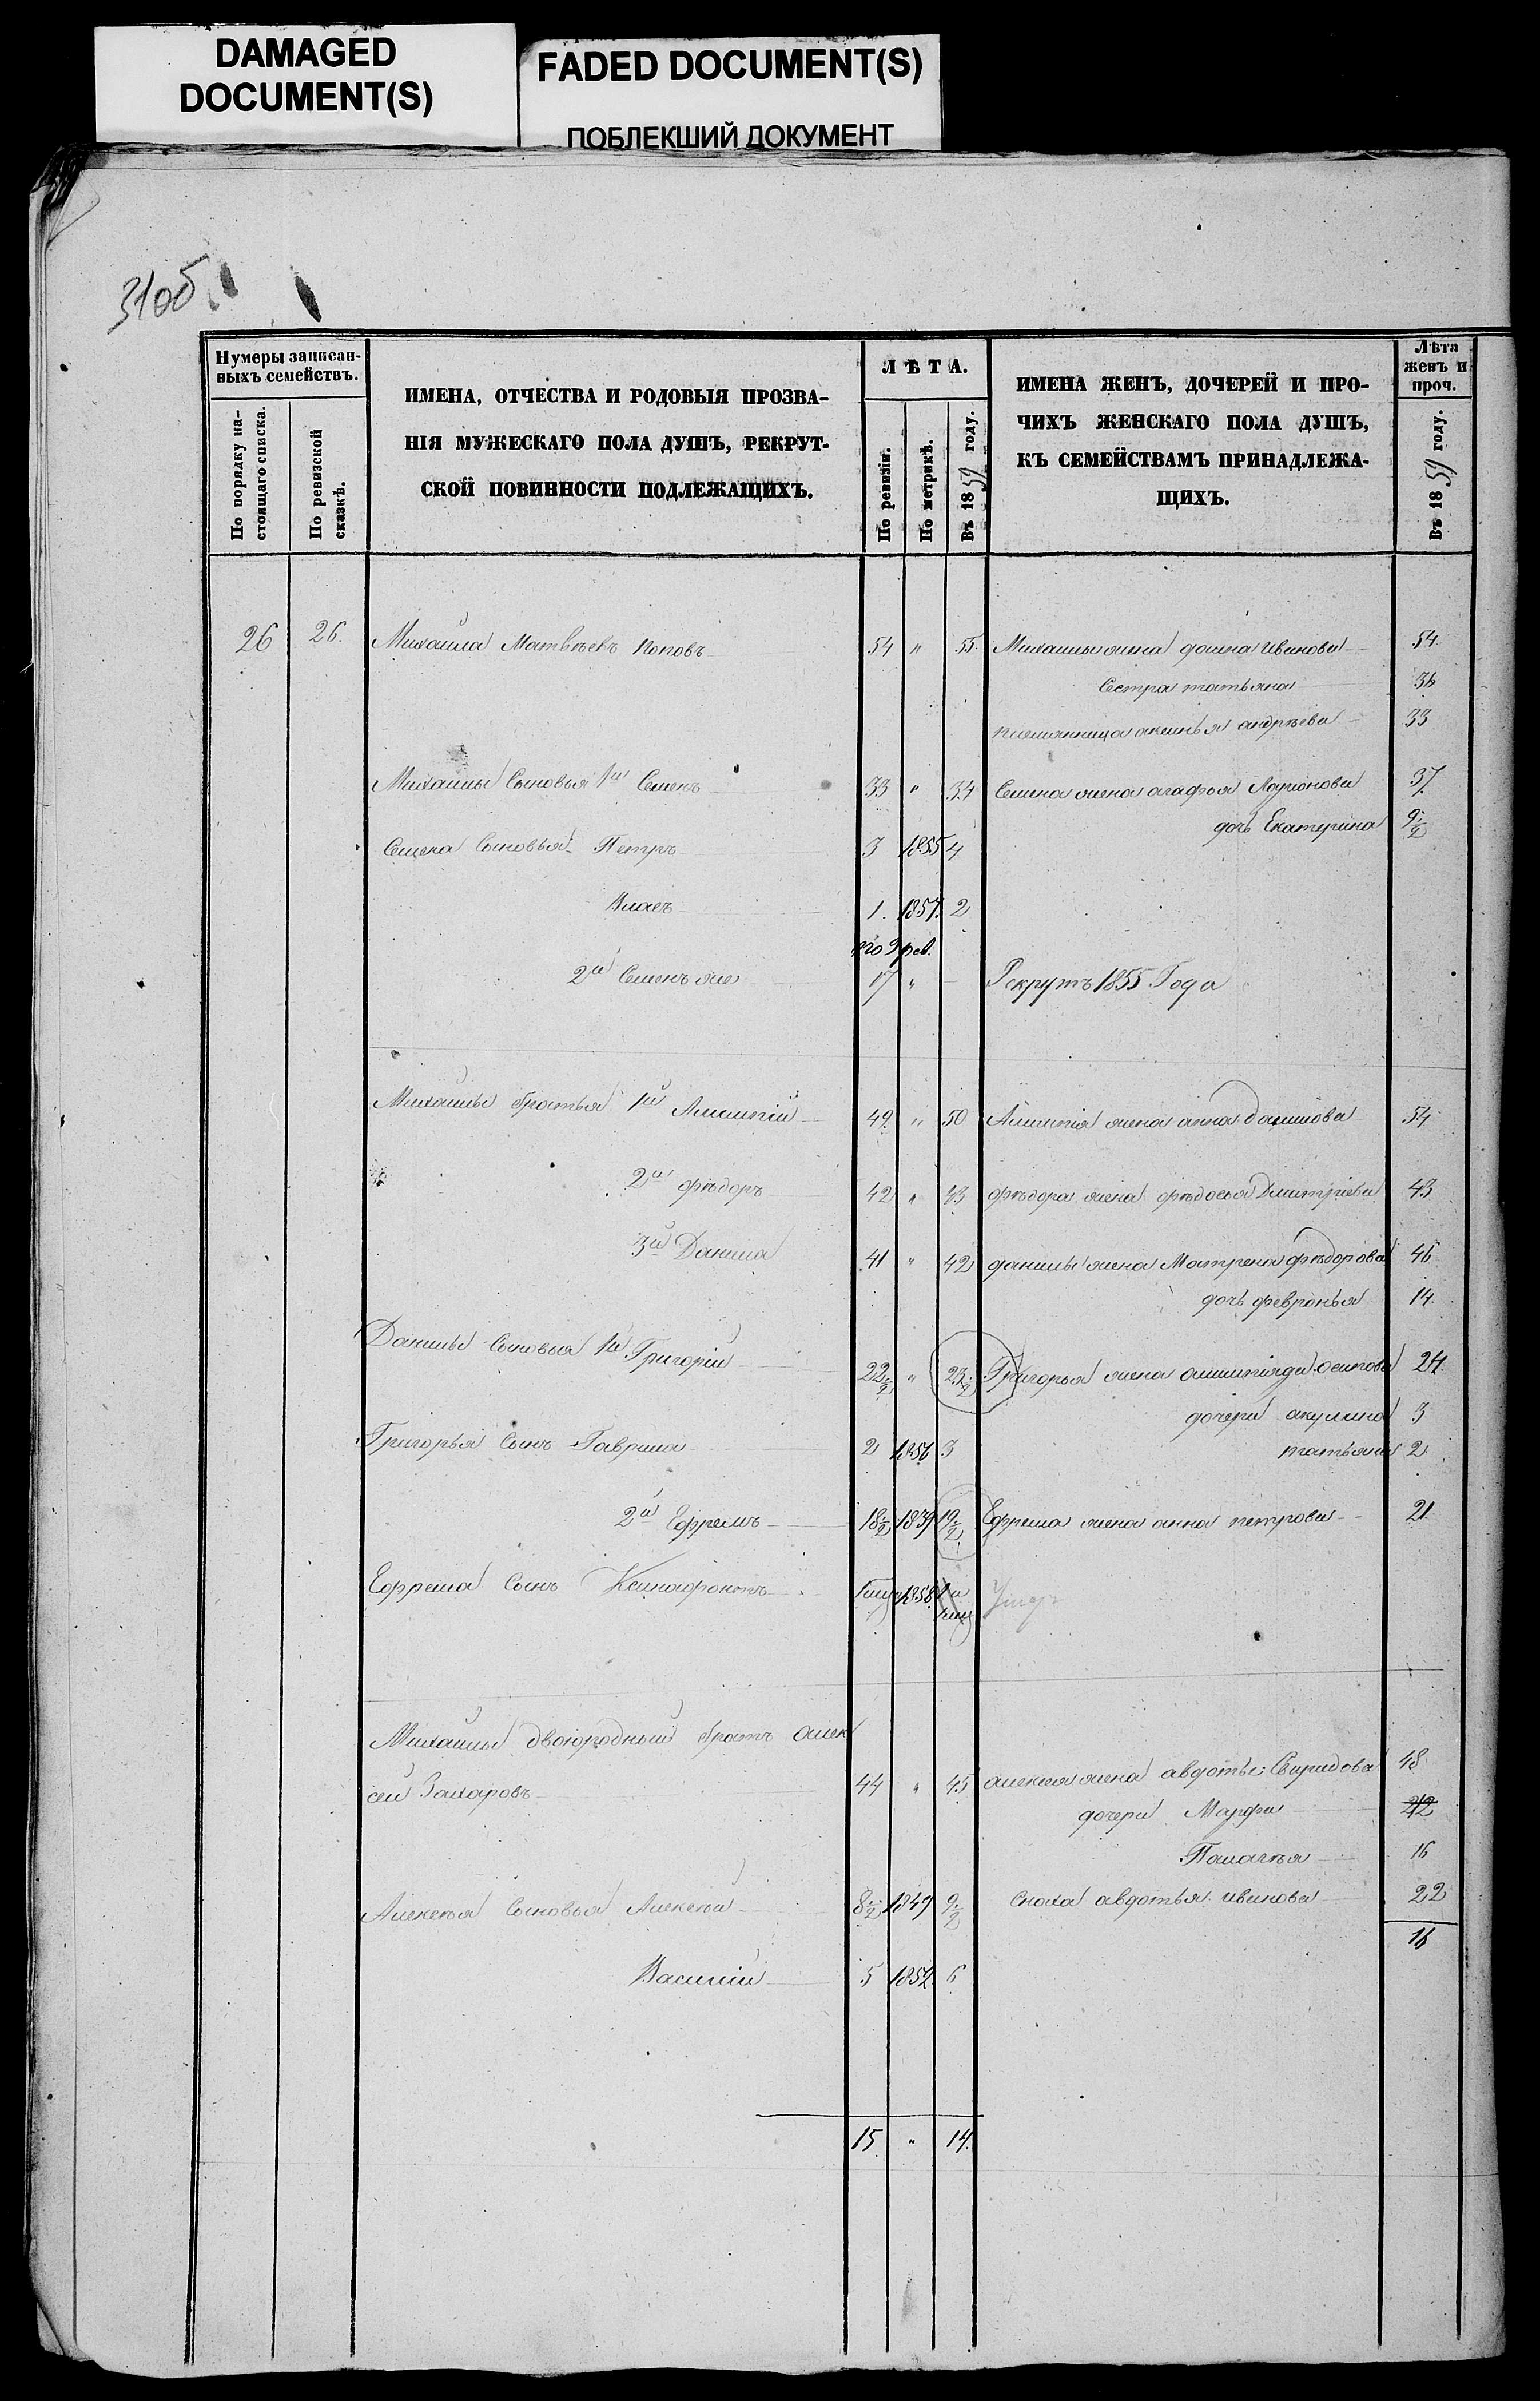 DAMAGED
DOCUMENT(S)
FADED DOCUMENT(S)
ПОБЛЕКШИЙ ДОКУМЕНТ
31об.
Нумеры записан-
ныхъ семействъ.
По порядку на-
стоящаго списка.
По ревизской
сказкѣ.
ИМЕНА, ОТЧЕСТВА И РОДОВЫЯ ПРОЗВА-
НІЯ МУЖЕСКАГО ПОЛА ДУШЪ, РЕКРУТ-
СКОЙ ПОВИННОСТИ ПОДЛЕЖАЩИХЪ.
ЛѢТА.
По ревизіи.
По метрикѣ.
Въ 1859 году.
ИМЕНА ЖЕНЪ, ДОЧЕРЕЙ И ПРО-
ЧИХЪ ЖЕНСКАГО ПОЛА ДУШЪ,
КЪ СЕМЕЙСТВАМЪ ПРИНАДЛЕЖА-
ЩИХЪ.
Лѣта
женъ и
проч.
Въ 1859 году.
26 26. Михайла Матвѣевъ Поповъ 54 " 55. Михайлы жена домна Иванова 54.
Сестра татьяна
племянница аксинья андрѣева 33
Михайлы Сыновья 1й Семенъ 33 " 34 Семена жена агафья Ларіонова 37
дочь Екатерина 9½
Семена Сыновья Петръ 3 1855 4
Власъ 1. 1857. 2
по 9 рев.
2й Семенъ же 17 " — Рекрутъ 1855 Года
Михайлы братья 1й Алимпій 49. " 50 Алимпія жена анна данилова 54
2й фѣдоръ 42 " 43 фѣдора жена фѣдосья Дмитріева 43
3й Данила 41 " 42 данилы жена Матрена фѣдорова 46
дочь февронья 14.
Данилы Сыновья 1й Григорій 22½ " 23½ Григорья жена олимпіяда осипова 24.
дочери акулина 3
Григорья Сынъ Гаврила 2 1856 3 татьяна 2
2й Ефремъ 18½ 1839 19½ Ефрема жена анна петрова 21.
Ефрема Сынъ Ксинофонтъ 1858 Умеръ
Михайлы двоюродный братъ алек
сей Захаровъ 44 " 45 алексея жена авдотья Свиридова 48
дочери Марфа
Палагѣя 16
Алексѣя Сыновья Алексѣй 8½ 1849 9½ Сноха авдотья иванова 22
16
Василій 5 1854. 6
15. " 14.